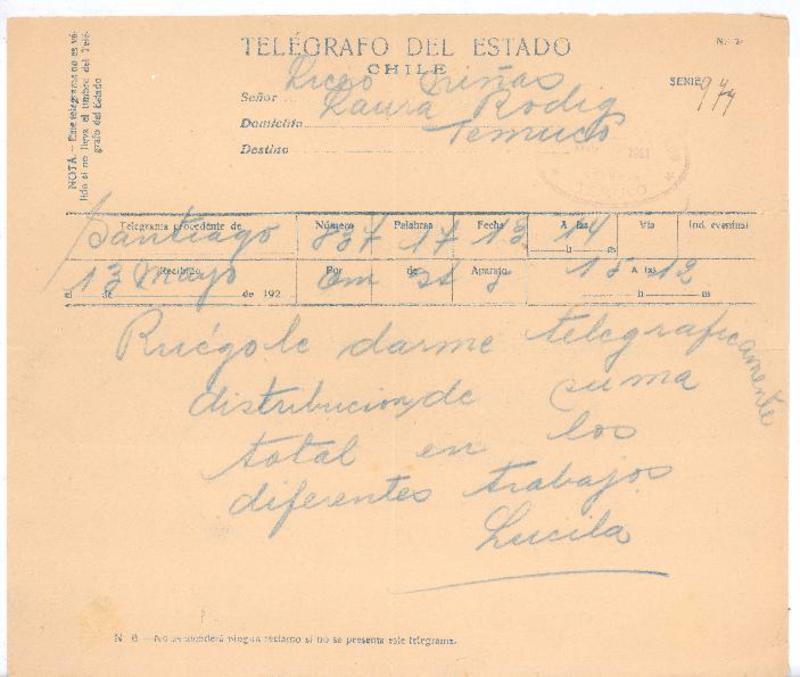 NOTA.—Este telegrama no es vá-
lido si no lleva el timbre del Telé-
grafo del Estado
TELÉGRAFO DEL ESTADO
CHILE
N.º 2
SERIE 977
Liceo Niñas
Señor Laura Rodig
Domicilio Temuco
Destino
Telegrama procedente de Número Palabras Fecha A las Vía Ind. eventual
Santiago 837 17 13 14
h m
Recibido Por de Aparato A las
13 Mayo 15 12
a de de 192 h m
Ruégole darme telegraficamente
distribucion de suma
total en los
diferentes trabajos
Lucila
N. B —No se atenderá ningún reclamo si no se presenta este telegrama.